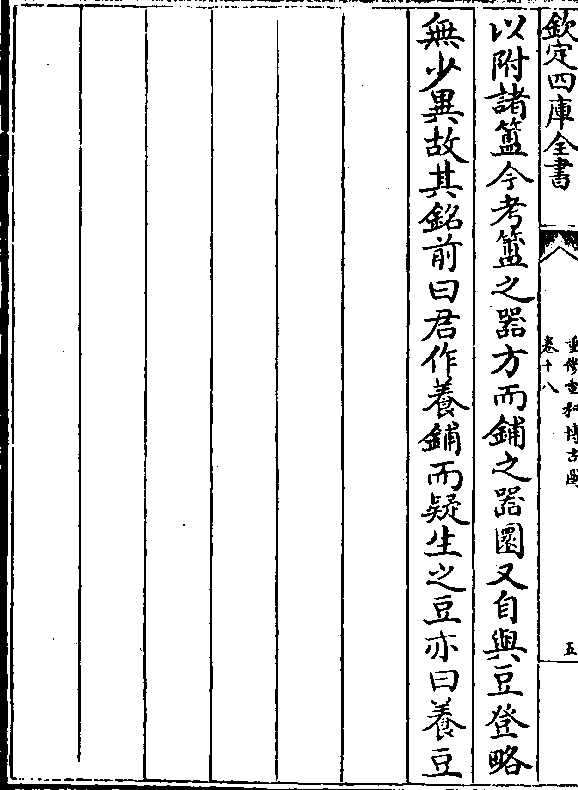 欽定四庫全書
重修宣和博古圖
卷十八
五
以附諸簠今考簠之器方而鋪之器圜又自與豆登略
無少異故其銘前曰君作養鋪而疑生之豆亦曰養豆